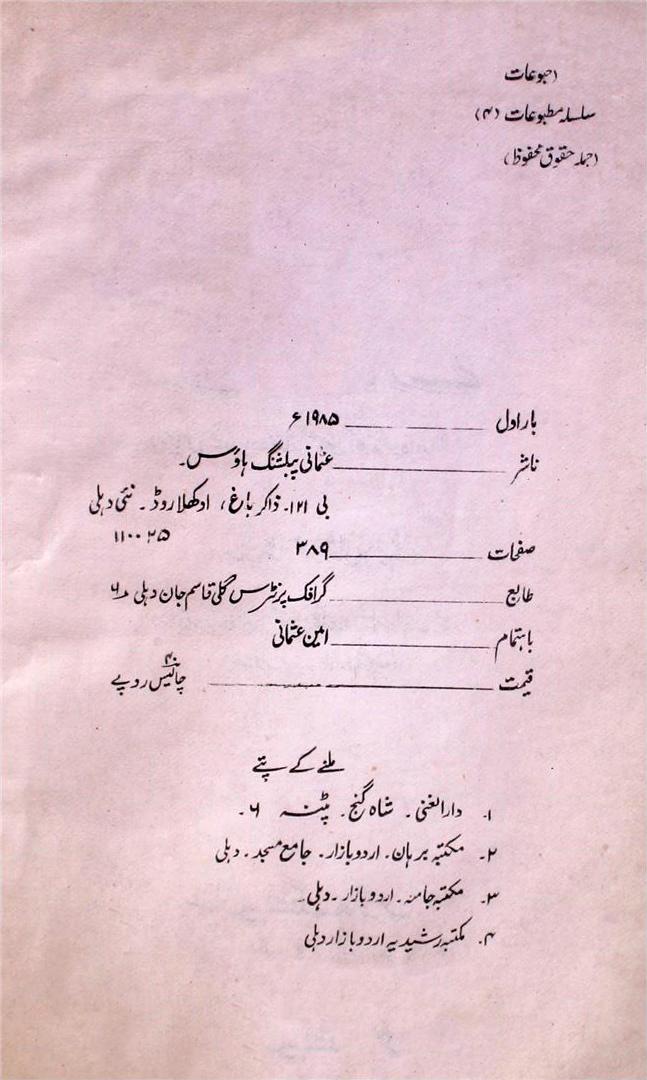 سلسلہ مطبوعات (۴)
(جملہ حقوق محفوظ)
بار اول ــــــ ۱۹۸۵ء
ناشر ــــــ عثمانی پبلشنگ ہاؤس۔
بی ۱۲۱۔ ذاکر باغ، اوکھلا روڈ۔ نئی دہلی
۱۱۰۰۲۵
صفحات ــــــ ۳۸۹
طابع ــــــ گرافک پرنٹرس گلی قاسم جان دہلی ۶
باہتمام ــــــ امین عثمانی
قیمت ــــــ ۴۰ چالیس روپے
ملنے کے پتے
۱۔ دارالغنی۔ شاہ گنج۔ پٹنہ ۶۔
۲۔ مکتبہ برہان۔ اردو بازار۔ جامع مسجد۔ دہلی
۳۔ مکتبہ جامعہ۔ اردو بازار۔ دہلی۔
۴۔ مکتبہ رشیدیہ اردو بازار دہلی